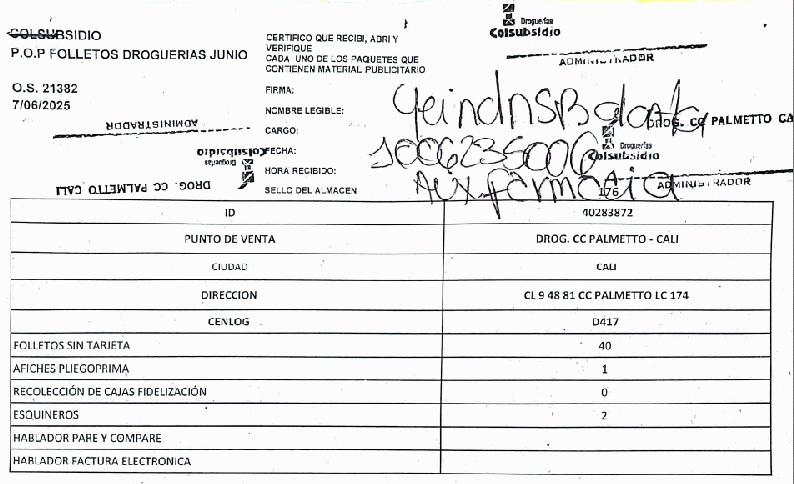 COLSUBSIDIO
P.O.P FOLLETOS DROGUERIAS JUNIO
O.S. 21382
7/06/2025
ADMINISTRADOR
Droguerías
Colsubsidio
DROG. CC PALMETTO CALI
CERTIFICO QUE RECIBI, ABRI Y
VERIFIQUE
CADA UNO DE LOS PAQUETES QUE
CONTIENEN MATERIAL PUBLICITARIO
FIRMA:
NOMBRE LEGIBLE:
CARGO:
FECHA:
HORA RECIBIDO:
SELLO DEL ALMACEN
Droguerías
Colsubsidio
ADMINISTRADOR
DROG. CC PALMETTO CA
1006235006
Droguerías
Colsubsidio
Aux farmacia
176
ADMINISTRADOR
ID 40283872
PUNTO DE VENTA DROG. CC PALMETTO - CALI
CIUDAD CALI
DIRECCION CL 9 48 81 CC PALMETTO LC 174
CENLOG D417
FOLLETOS SIN TARJETA 40
AFICHES PLIEGOPRIMA 1
RECOLECCIÓN DE CAJAS FIDELIZACIÓN 0
ESQUINEROS 2
HABLADOR PARE Y COMPARE
HABLADOR FACTURA ELECTRONICA